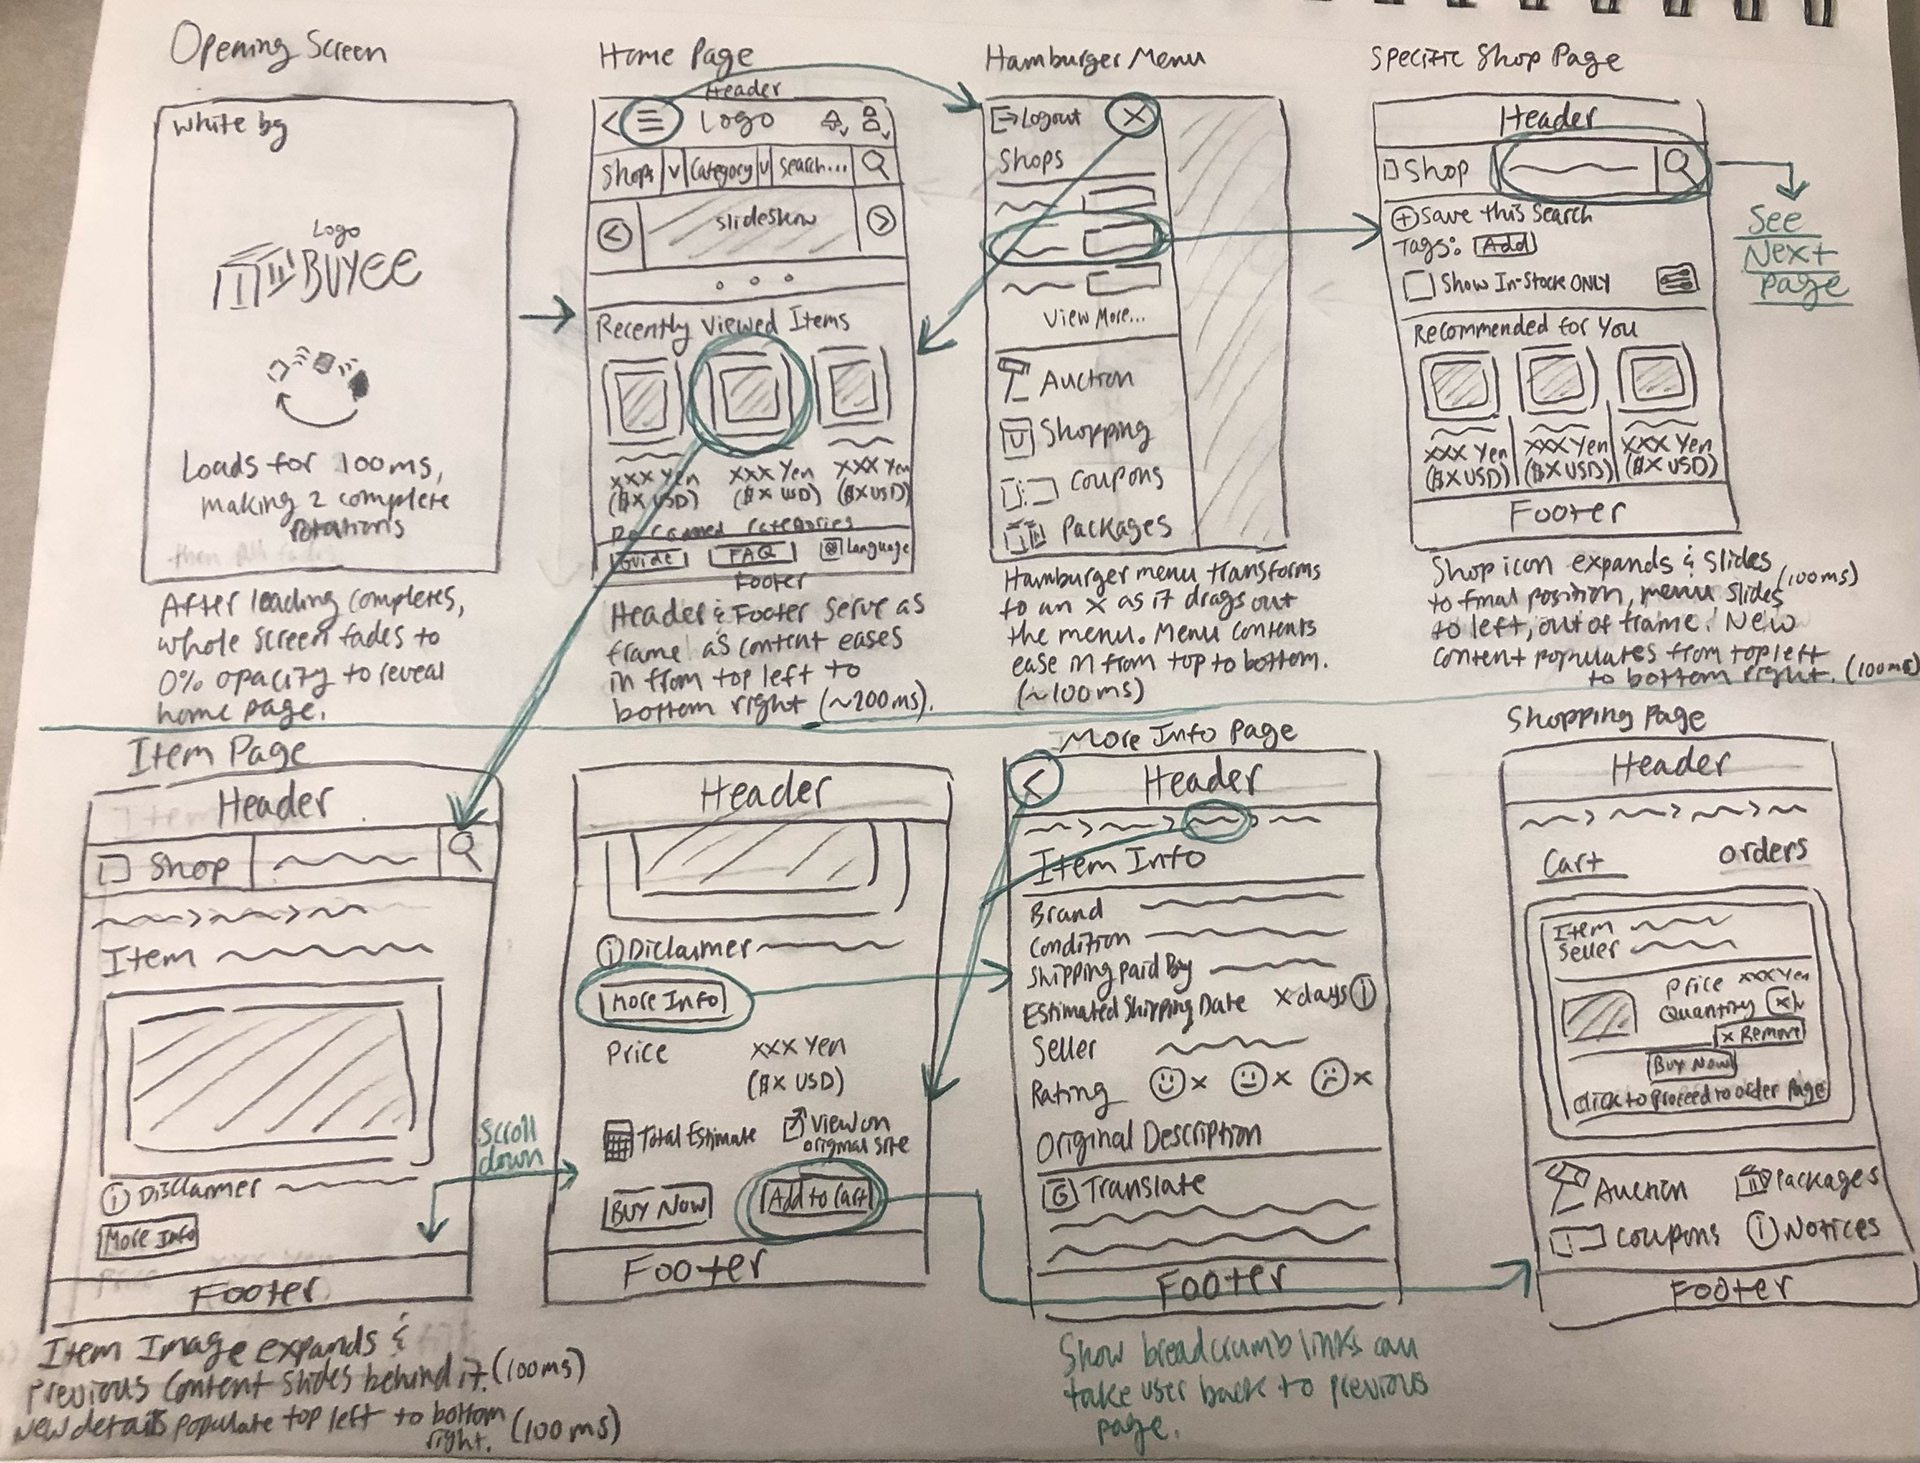 Opening Screen
White bg
Logo
BUYEE
Loads for 100ms,
making 2 complete
rotations
After loading completes,
whole screen fades to
0% opacity to reveal
home page.
Home Page
Header
< ☰ Logo
Shops v Category v Search...
< slideshow >
Recently Viewed Items
xxx Yen xxx Yen xxx Yen
($X USD) ($X USD) ($X USD)
Guide FAQ Language
Footer
Header & Footer serve as
frame as content eases
in from top left to
bottom right (~200ms).
Hamburger Menu
Logout X
Shops
View More...
Auction
Shopping
Coupons
Packages
Hamburger menu transforms
to an X as it drags out
the menu. Menu contents
ease in from top to bottom.
(~100ms)
Specific Shop Page
Header
Shop
+ Save this Search
Tags: Add
Show In-Stock ONLY
Recommended for You
xxx Yen xxx Yen xxx Yen
($X USD) ($X USD) ($X USD)
Footer
See
Next
page
Shop icon expands & slides
to final position, menu slides (100ms)
to left, out of frame. New
content populates from top left
to bottom right. (100ms)
Item Page
Header
Shop
Item
i Disclaimer
More Info
Footer
Item Image expands &
Previous Content slides behind it. (100ms)
New details populate top left to bottom
right. (100ms)
Scroll
down
Header
i Disclaimer
More Info
Price xxx Yen
($X USD)
Total Estimate View on
original site
Buy Now Add to Cart
Footer
More Info Page
< Header
Item Info
Brand
Condition
Shipping Paid By
Estimated Shipping Date x days i
Seller
Rating x x x
Original Description
G Translate
Footer
Show breadcrumb links can
take user back to previous
page.
Shopping Page
Header
Cart Orders
Item
Seller
Price xxx Yen
Quantity x v
x Remove
Buy Now
Click to proceed to order page
Auction Packages
Coupons i Notices
Footer